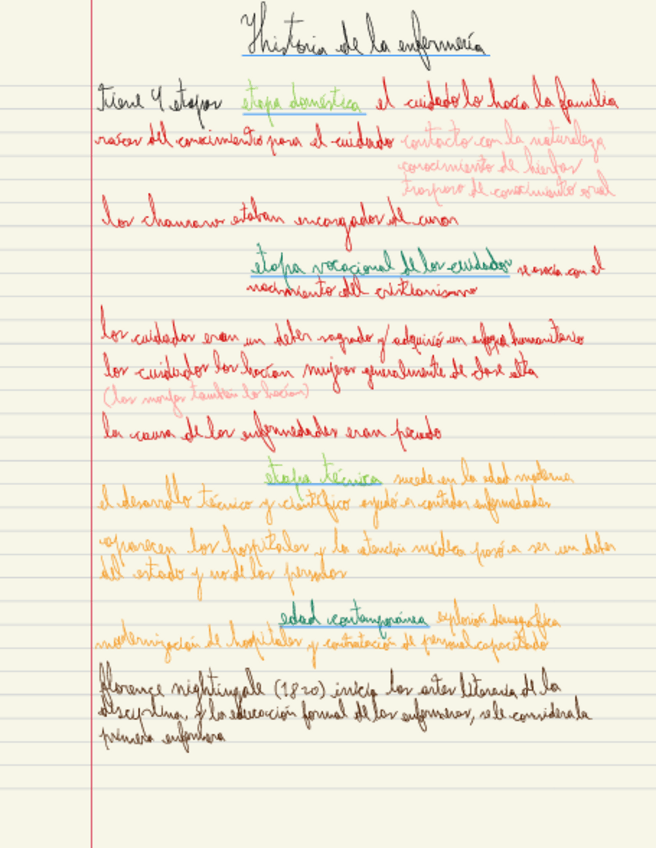 Historia de la enfermería
Tiene 4 etapas etapa doméstica el cuidado lo hacía la familia
raíces del conocimiento para el cuidado contacto con la naturaleza
conocimiento de hierbas
traspaso de conocimiento oral
los chamanes estaban encargados de curar
etapa vocacional de los cuidados se asocia con el
nacimiento del cristianismo
los cuidados eran un deber sagrado y adquirió un enfoque humanitario
los cuidados los hacían mujeres generalmente de clase alta
(las monjas también lo hacían)
la causa de las enfermedades eran pecado
etapa técnica sucede en la edad moderna
el desarrollo técnico y científico ayudó a controlar enfermedades
aparecen los hospitales y la atención médica pasó a ser un deber
del estado y no de las personas
edad contemporánea explosión demográfica
modernización de hospitales y contratación de personal capacitado
florence nightingale (1820) inicia las artes literarias de la
disciplina, y la educación formal de las enfermeras, se le considera la
primera enfermera